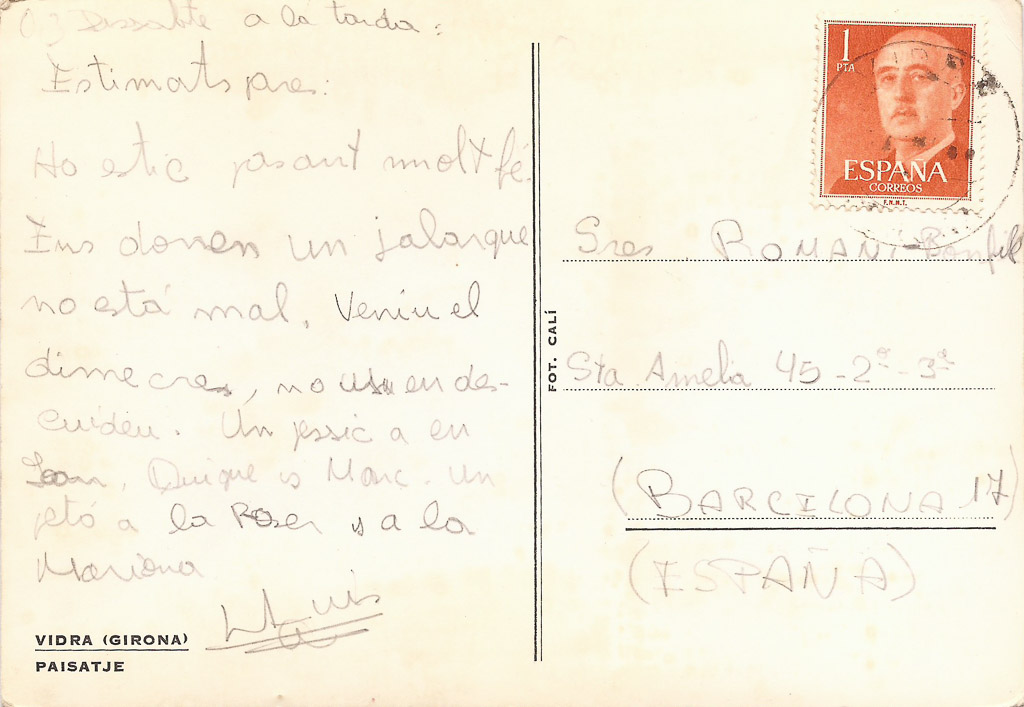 Dissabte a la tarda:
Estimats pares:
Ho estic pasant molt fé.
Ens donen un jalar que
no está mal. Veniu el
dimecres, no us en des-
cuideu. Un pessic a en
Joan, Quique i a Marc. Un
petó a la Roser i a la
Mariona
Lluis
VIDRA (GIRONA)
PAISATJE
FOT. CALÍ
1
PTA
ESPAÑA
CORREOS
F.N.M.T.
Sres ROMANÍ-Bonfill
Sta. Amelia 45-2º-3ª
(BARCELONA 17)
(ESPAÑA)